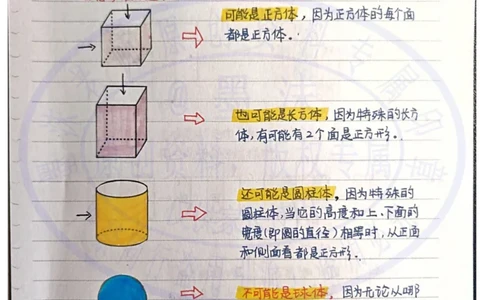 可能是正方体，因为正方体的每个面
都是正方体。
也可能是长方体，因为特殊的长方
体，有可能有2个面是正方形。
还可能是圆柱体，因为特殊的
圆柱体，当它的高度和上、下面的
宽度(即圆的直径)相等时，从正面
和侧面看都是正方形。
不可能是球体，因为无论从哪